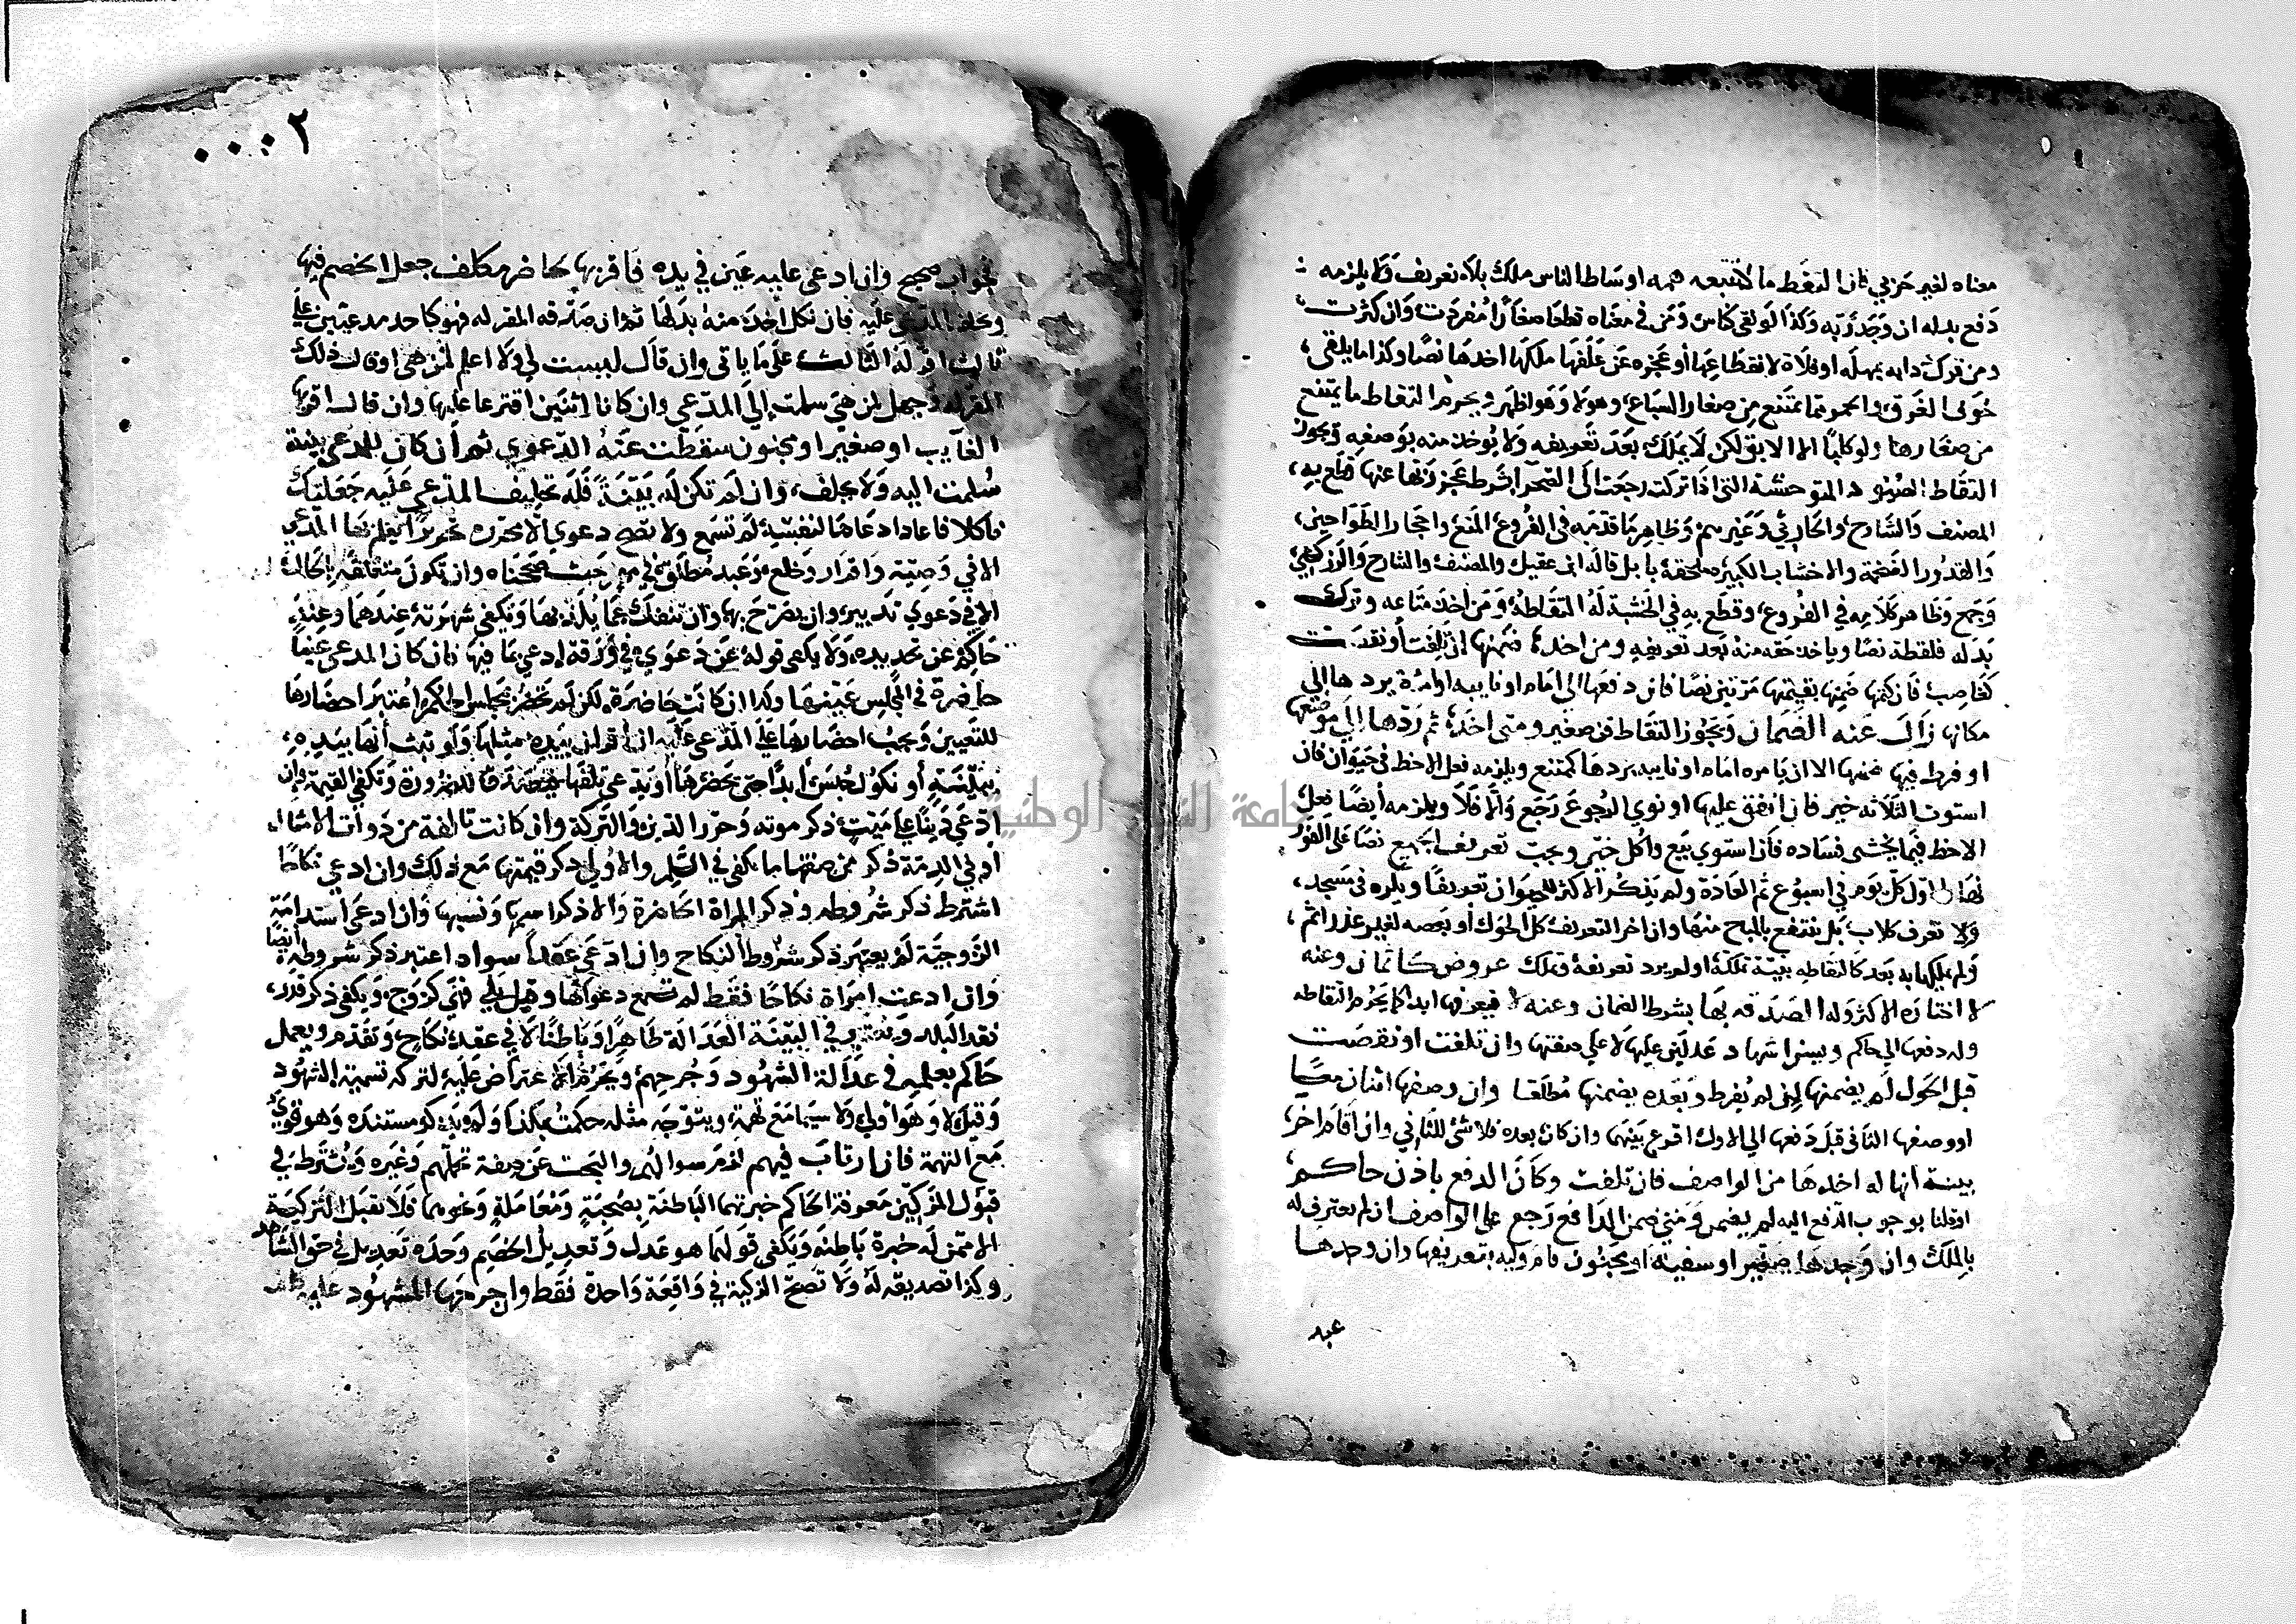 معناه لغير حربي فان التقط ما لا تتبعه همه اوساط الناس ملك بلا تعريف ولا يلزمه
دفع بدله ان وجد ربه وكذا لو لقي كناس ومن في معناه قطعا صغارا مفردة وان كثرت
ومن ترك دابه بمهلكه او فلاة لانقطاعها أو عجزه عن علفها ملكها اخذها نصا وكذا ما يلقى
خوف الغرق يمتنع من صغار السباع وهو اظهر ويحرم التقاط ما يمتنع
من صغارها ولو كلبا الا الابق لكن لا يملك بعد تعريفه ولا يوخذ منه بوصفه ويجوز
التقاط الصيود المتوحشة التي اذا تركت رجعت الى الصحرا بشرط عجز ربها عنها قطع به
المصنف والشارح والحارثي وغيرهم وظاهر ما قدمه في الفروع المنع واحجار الطواحين
والقدور الضخمة والاخشاب الكبيره ملحقة بابل قاله ابن عقيل والمصنف والشارح والزركشي
وجمع وظاهر كلامه في الفروع وقطع به في الخشبة له التقاطه ومن اخذ متاعه وترك
بدله فلقطة نصا وياخذ حقه منه بعد تعريفه ومن اخذه ضمنها ان تلفت أو نقصت
كغاصب فان كتمها ضمنها بقيمتها مرتين نصا فان دفعها الى امام او نايبه او امره بردها الى
مكانها زال عنه الضمان ويجوز التقاط من صغير ومتى اخذه ثم ردها الى موضعها
او فرط فيها ضمنها الا ان يامره امام او نايبه بردها كممتنع ويلزمه فعل الاحظ في حيوان فان
استوت الثلاثه خير فان انفق عليها او نوي الرجوع رجع والا فلا ويلزمه أيضا فعل
الاحظ فيما يخشى فساده فان استوي بيع واكل خير ويجب تعريف الجميع نصا على الفور
نهارا اول كل يوم في اسبوع ثم العادة ولم يذكر الاكثر للحيوان تعريفا ويكره في مسجد
ولا تعرف كلاب بل ينتفع بالمباح منها وان اخر التعريف كل الحول أو بعضه لغير عذر اثم
ولم يملكها به بعد كالتقاطه بنية تملكه او لم يرد تعريفه وتملك عروض كاثمان وعنه
لا اختاره الاكثر وله الصدقه بها بشرط الضمان وعنه لا فيعرفها ابدا كما يحرم التقاطه
وله دفعها الى حاكم ويسن اشهاد عدلين عليها لا على صفتها وان تلفت او نقصت
قبل الحول لم يضمنها ان لم يفرط وبعده يضمنها مطلقا وان وصفها اثنان معا
او وصفها الثاني قبل دفعها الى الاول اقرع بينهما وان كان بعده فلا شئ للثاني وان اقام اخر
بينة انها له اخذها من الواصف فان تلفت وكان الدفع باذن حاكم
او قلنا بوجوب الدفع اليه لم يضمن ومتى ضمن الدافع رجع على الواصف ان لم يعترف له
بالملك وان وجدها صغير او سفيه او مجنون قام وليه بتعريفها وان وجدها
عبد
٠٠٠٢
بجواب صحيح وان ادعى عليه عين في يده فاقر بها لحاضر مكلف جعل الخصم فيها
وحلف المدعى عليه فان نكل اخذ منه بدلها ثم ان صدقه المقر له فهو كاحد مدعيين على
ثالث اقر له الثالث على ما ياتي وان قال ليست لي ولا اعلم لمن هي او قال ذلك
المقر له وجهل لمن هي سلمت الى المدعي وان كانا اثنين اقترعا عليها وان قال اقر بها
الغايب او صغير او مجنون سقطت عنه الدعوي ثم ان كان للمدعي بينة
سلمت اليه ولا يحلف وان لم تكن له بينة فله تحليف المدعى عليه
ناكلا فاعاد ادعاها لنفسه لم تسمع ولا تصح دعوي الا محررة تحريرا يعلم بها المدعي
الا في وصية واقرار وخلع وعبد مطلق في مهر حيث صححناه وان تكون متعلقه بالحال
الا في دعوي تدبير وان يصرح بها وان تنفك عما يكذبها ويكفي شهرته عندهما وعند
حاكم عن تحديده ولا يكفي قوله عن دعوي في ورقة ادعي بما فيها فان كان المدعى عينا
حاضرة في المجلس عينها وكذا ان كانت حاضرة لكن لم تحضر مجلس الحكم اعتبر احضارها
للتعيين ويجب احضارها على المدعى عليه ان اقر ان بيده مثلها ولو ثبت أنها بيده
ببينة أو نكول حبس أبدا حتى يحضرها أو يدعي تلفها فيصدق للضرورة وتكفي القيمة وان
ادعى دينا على ميت ذكر موته وحرر الدين والتركة وان كانت تالفة من ذوات الامثال
او في الذمة ذكر من صفتها ما يكفي في السلم والاولى ذكر قيمتها مع ذلك وان ادعي نكاحا
اشترط ذكر شروطه وذكر المراة الحاضرة والا ذكر اسمها ونسبها وان ادعى استدامة
الزوجية لم يعتبر ذكر شروط النكاح وان ادعى عقدا سواه اعتبر ذكر شروطه أيضا
وان ادعت امراة نكاحا فقط لم تسمع دعواها وقيل بلى فهي كزوج ويكفي ذكر قدر
نقد البلد ويعتبر في البينة العدالة ظاهرا وباطنا لا في عقد نكاح وتقدم ويعمل
حاكم بعلمه في عدالة الشهود وجرحهم ويحرم الاعتراض عليه لتركه تسمية الشهود
وقيل لا وهو أولى ولا سيما مع تهمة ويتوجه مثله حكمت بكذا ولم يذكر مستنده وهو قوي
مع التهمة فان ارتاب فيهم لزم سوالهم والبحث عن صفة تحملهم وغيره ويشترط في
قبول المزكين معرفة الحاكم خبرتهما الباطنة بصحبة ومعاملة ونحوهما فلا تقبل التزكية
الا ممن له خبرة باطنه ويكفي قولهما هو عدل وتعديل الخصم وحده تعديل في حق الشاهد
وكذا تصديقه له ولا تصح التزكية في واقعة واحدة فقط
جامعة النجاح الوطنية